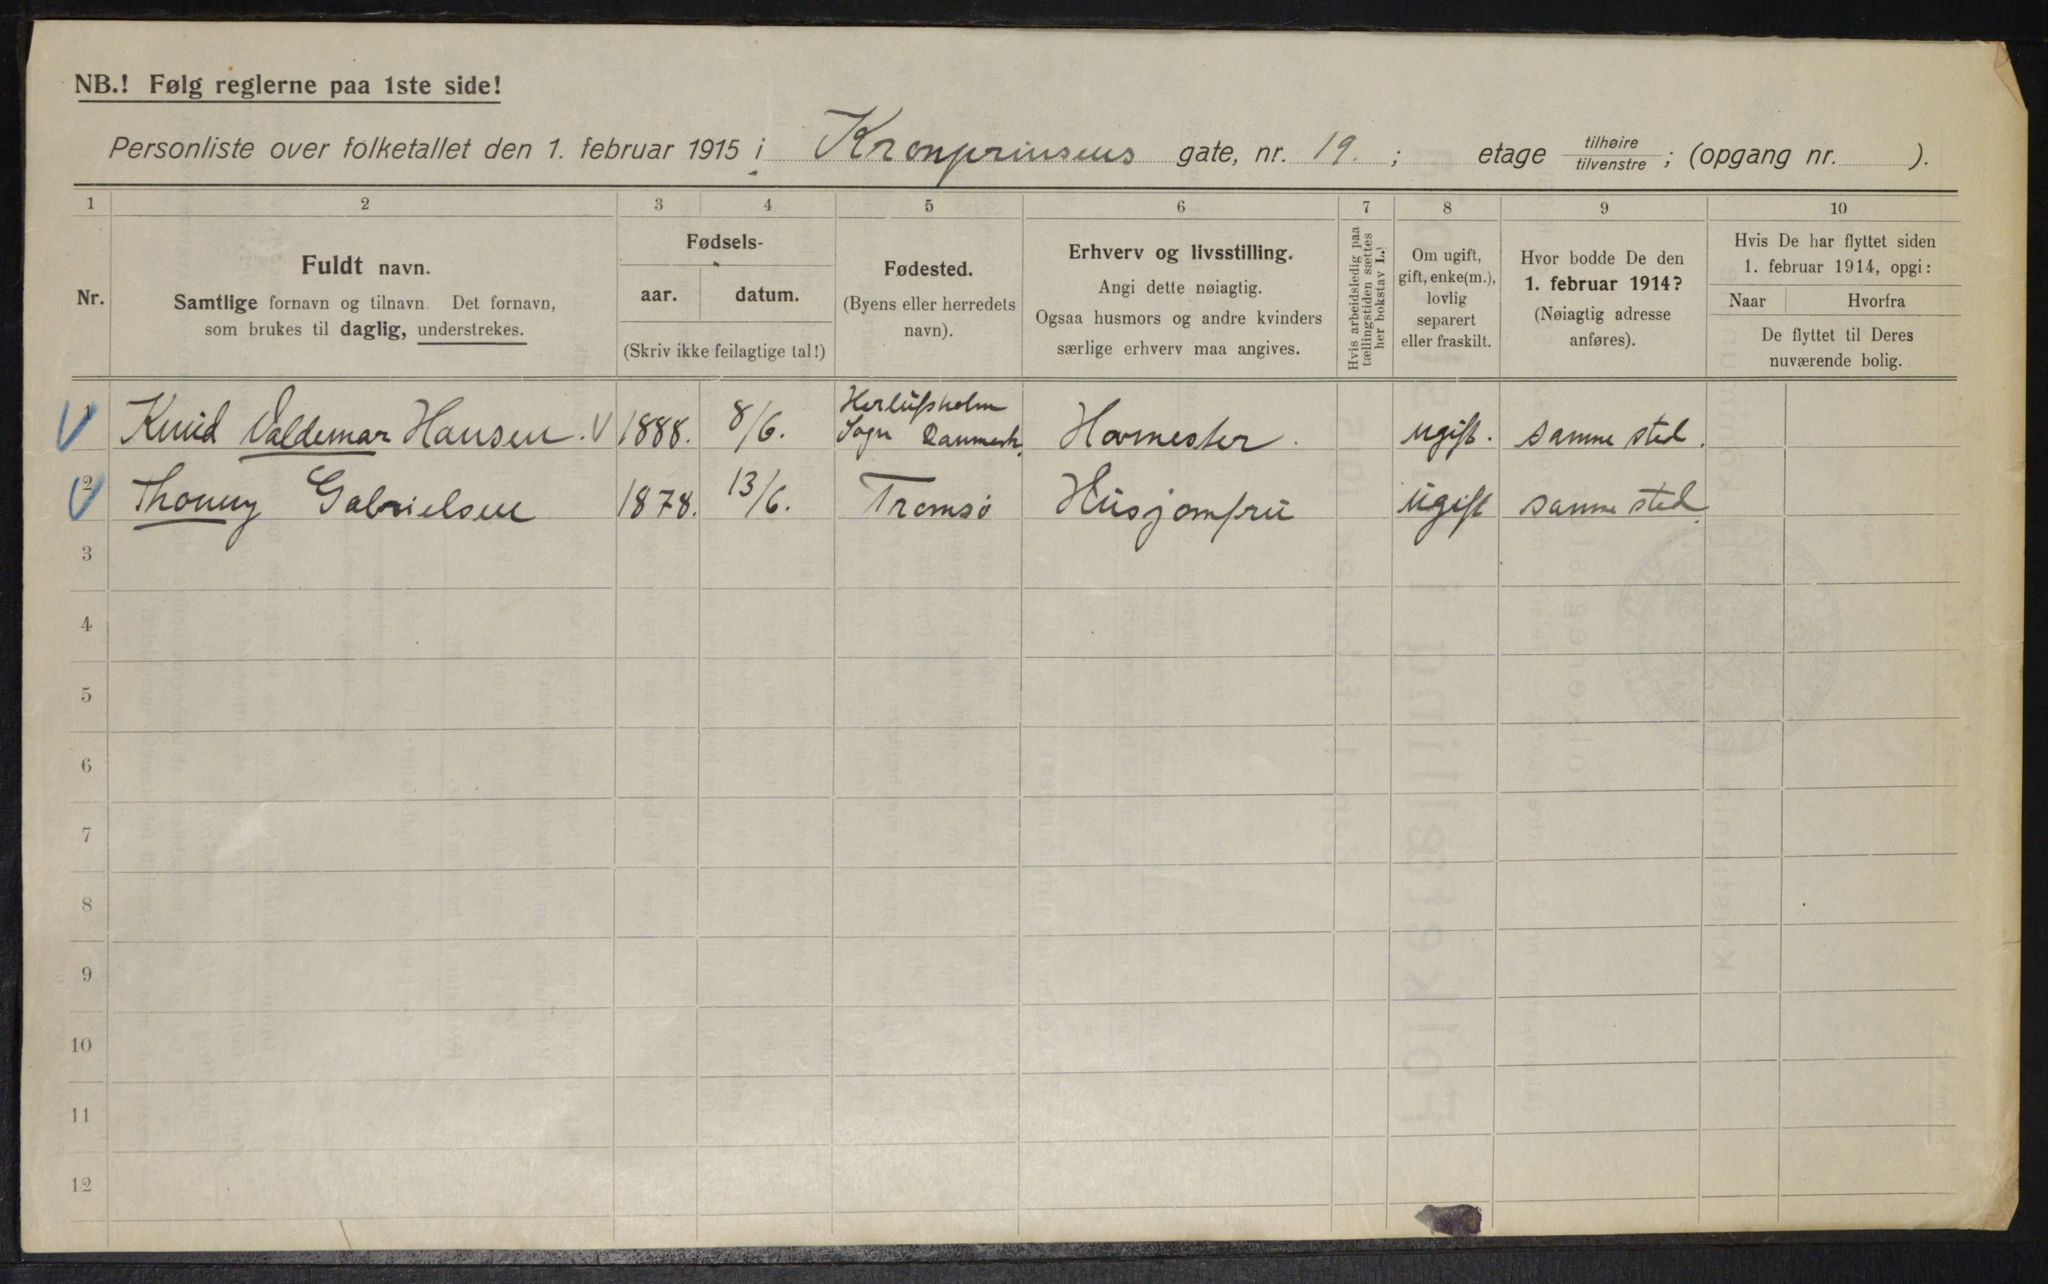 NB.! Følg reglerne paa 1ste side!
Personliste over folketallet den 1. februar 1915 i Kronprinsens gate, nr. 19. ; etage tilhøire / tilvenstre ; (opgang nr. ).
1 2 3 4 5 6 7 8 9 10
Nr.
Fuldt navn.
Samtlige fornavn og tilnavn. Det fornavn,
som brukes til daglig, understrekes.
Fødsels-
aar. datum.
(Skriv ikke feilagtige tal!)
Fødested.
(Byens eller herredets
navn).
Erhverv og livsstilling.
Angi dette nøiagtig.
Ogsaa husmors og andre kvinders
særlige erhverv maa angives.
Hvis arbeidsledig paa
tællingstiden sættes
her bokstav L.
Om ugift,
gift, enke(m.),
lovlig
separert
eller fraskilt.
Hvor bodde De den
1. februar 1914?
(Nøiagtig adresse
anføres).
Hvis De har flyttet siden
1. februar 1914, opgi:
Naar Hvorfra
De flyttet til Deres
nuværende bolig.
1 Knud Valdemar Hansen. V 1888. 8/6. Herlufsholm Sogn Danmark. Hovmester. ugift. samme sted.
2 Thonny Gabrielsen 1878. 13/6. Tromsø Husjomfru ugift samme sted.
3
4
5
6
7
8
9
10
11
12